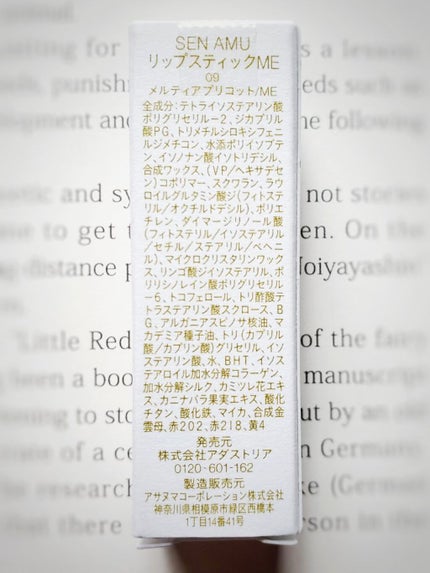 SEN AMU
リップスティックME
09
メルティアプリコット/ME
全成分:テトライソステアリン酸
ポリグリセリル-2、ジカプリル
酸PG、トリメチルシロキシフェニ
ルジメチコン、水添ポリイソブテ
ン、イソノナン酸イソトリデシル、
合成ワックス、(VP/ヘキサデセ
ン)コポリマー、スクワラン、ラウ
ロイルグルタミン酸ジ(フィトステ
リル/オクチルドデシル)、ポリエ
チレン、ダイマージリノール酸
(フィトステリル/イソステアリル
/セチル/ステアリル/ベヘニ
ル)、マイクロクリスタリンワック
ス、リンゴ酸ジイソステアリル、ポ
リリシノレイン酸ポリグリセリル
-6、トコフェロール、トリ酢酸テ
トラステアリン酸スクロース、B
G、アルガニアスピノサ核油、マ
カデミア種子油、トリ(カプリル
酸/カプリン酸)グリセリル、イソ
ステアリン酸、水、BHT、イソス
テアロイル加水分解コラーゲン、
加水分解シルク、カミツレ花エキ
ス、カニナバラ果実エキス、酸化
チタン、酸化鉄、マイカ、合成金
雲母、赤202、赤218、黄4
発売元
株式会社アダストリア
0120-601-162
製造販売元
アサヌマコーポレーション株式会社
神奈川県相模原市緑区西橋本
1丁目14番41号